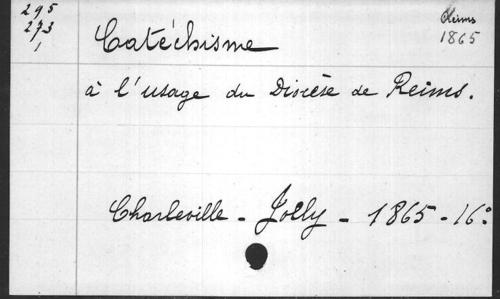 295
273
1
Reims
1865
Catéchisme
à l'usage du Diocèse de Reims.
Charleville - Jolly - 1865 - 16°